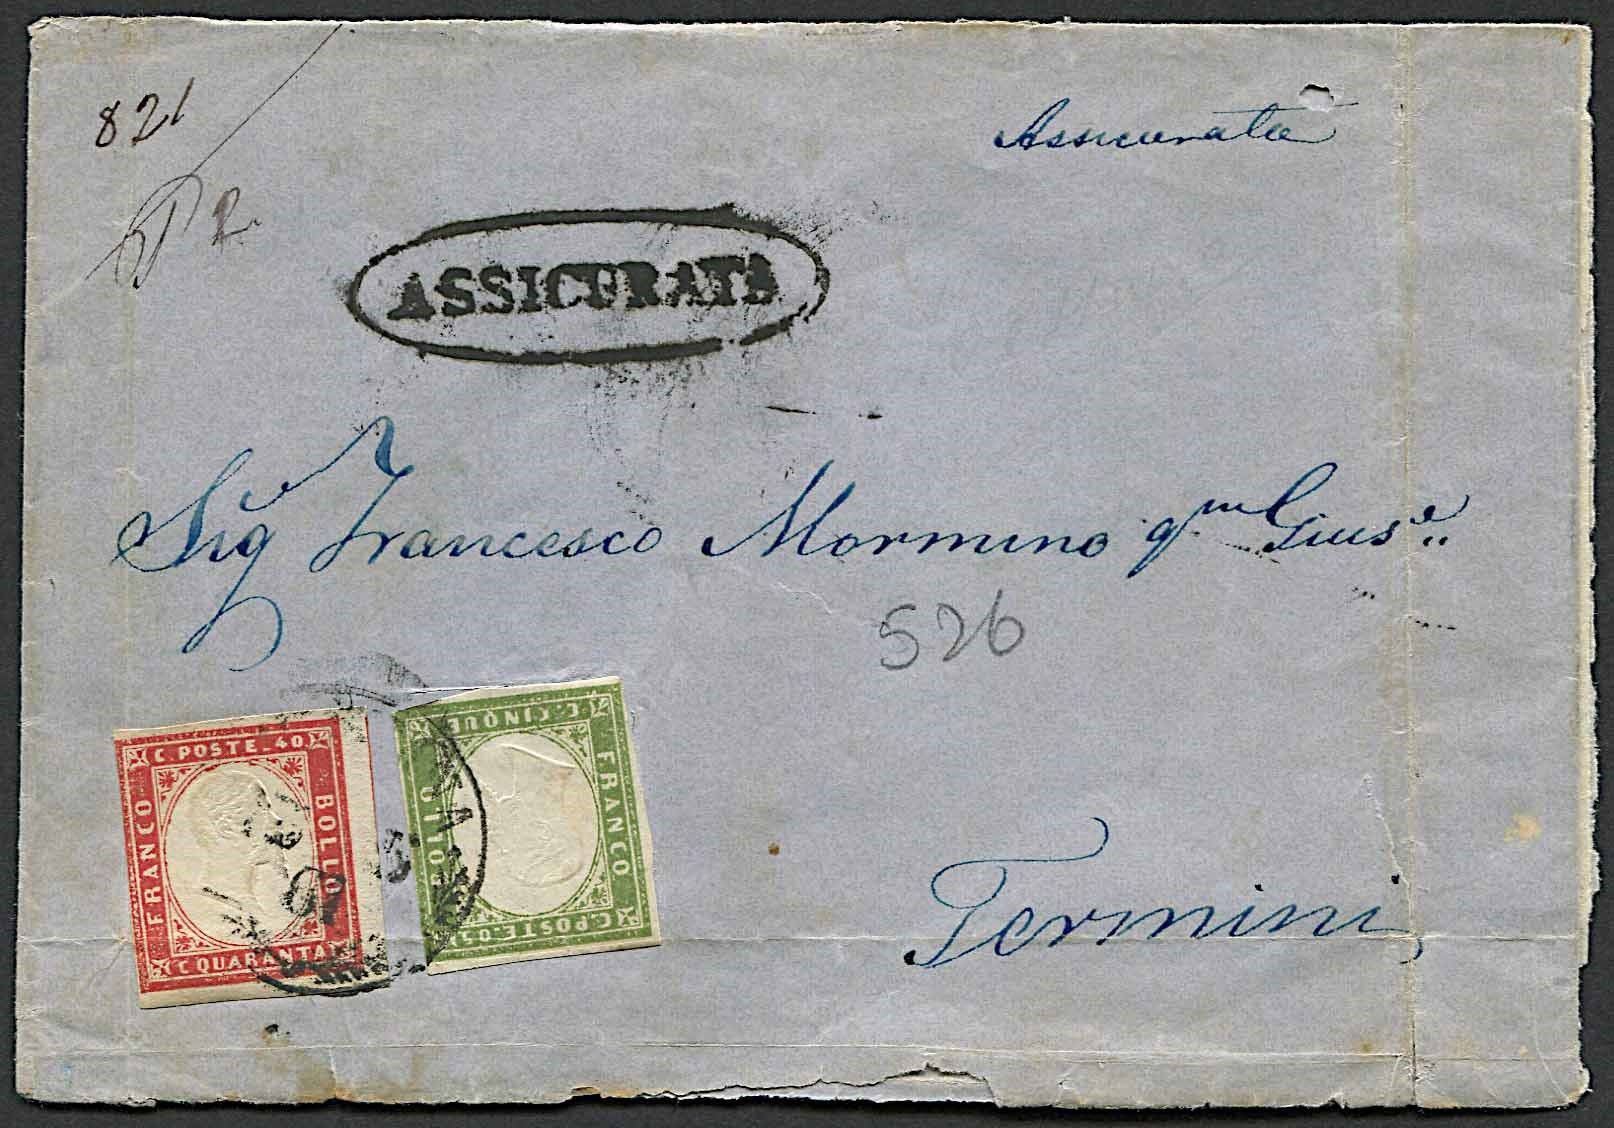 821
Assicurata
ASSICURATA
Sigr Francesco Mormino qm Giuse
526
C. POSTE. 40
FRANCO
BOLLO
C QUARANTA
C. CINQUE
FRANCO
BOLLO
C. POSTE. 05
Termini